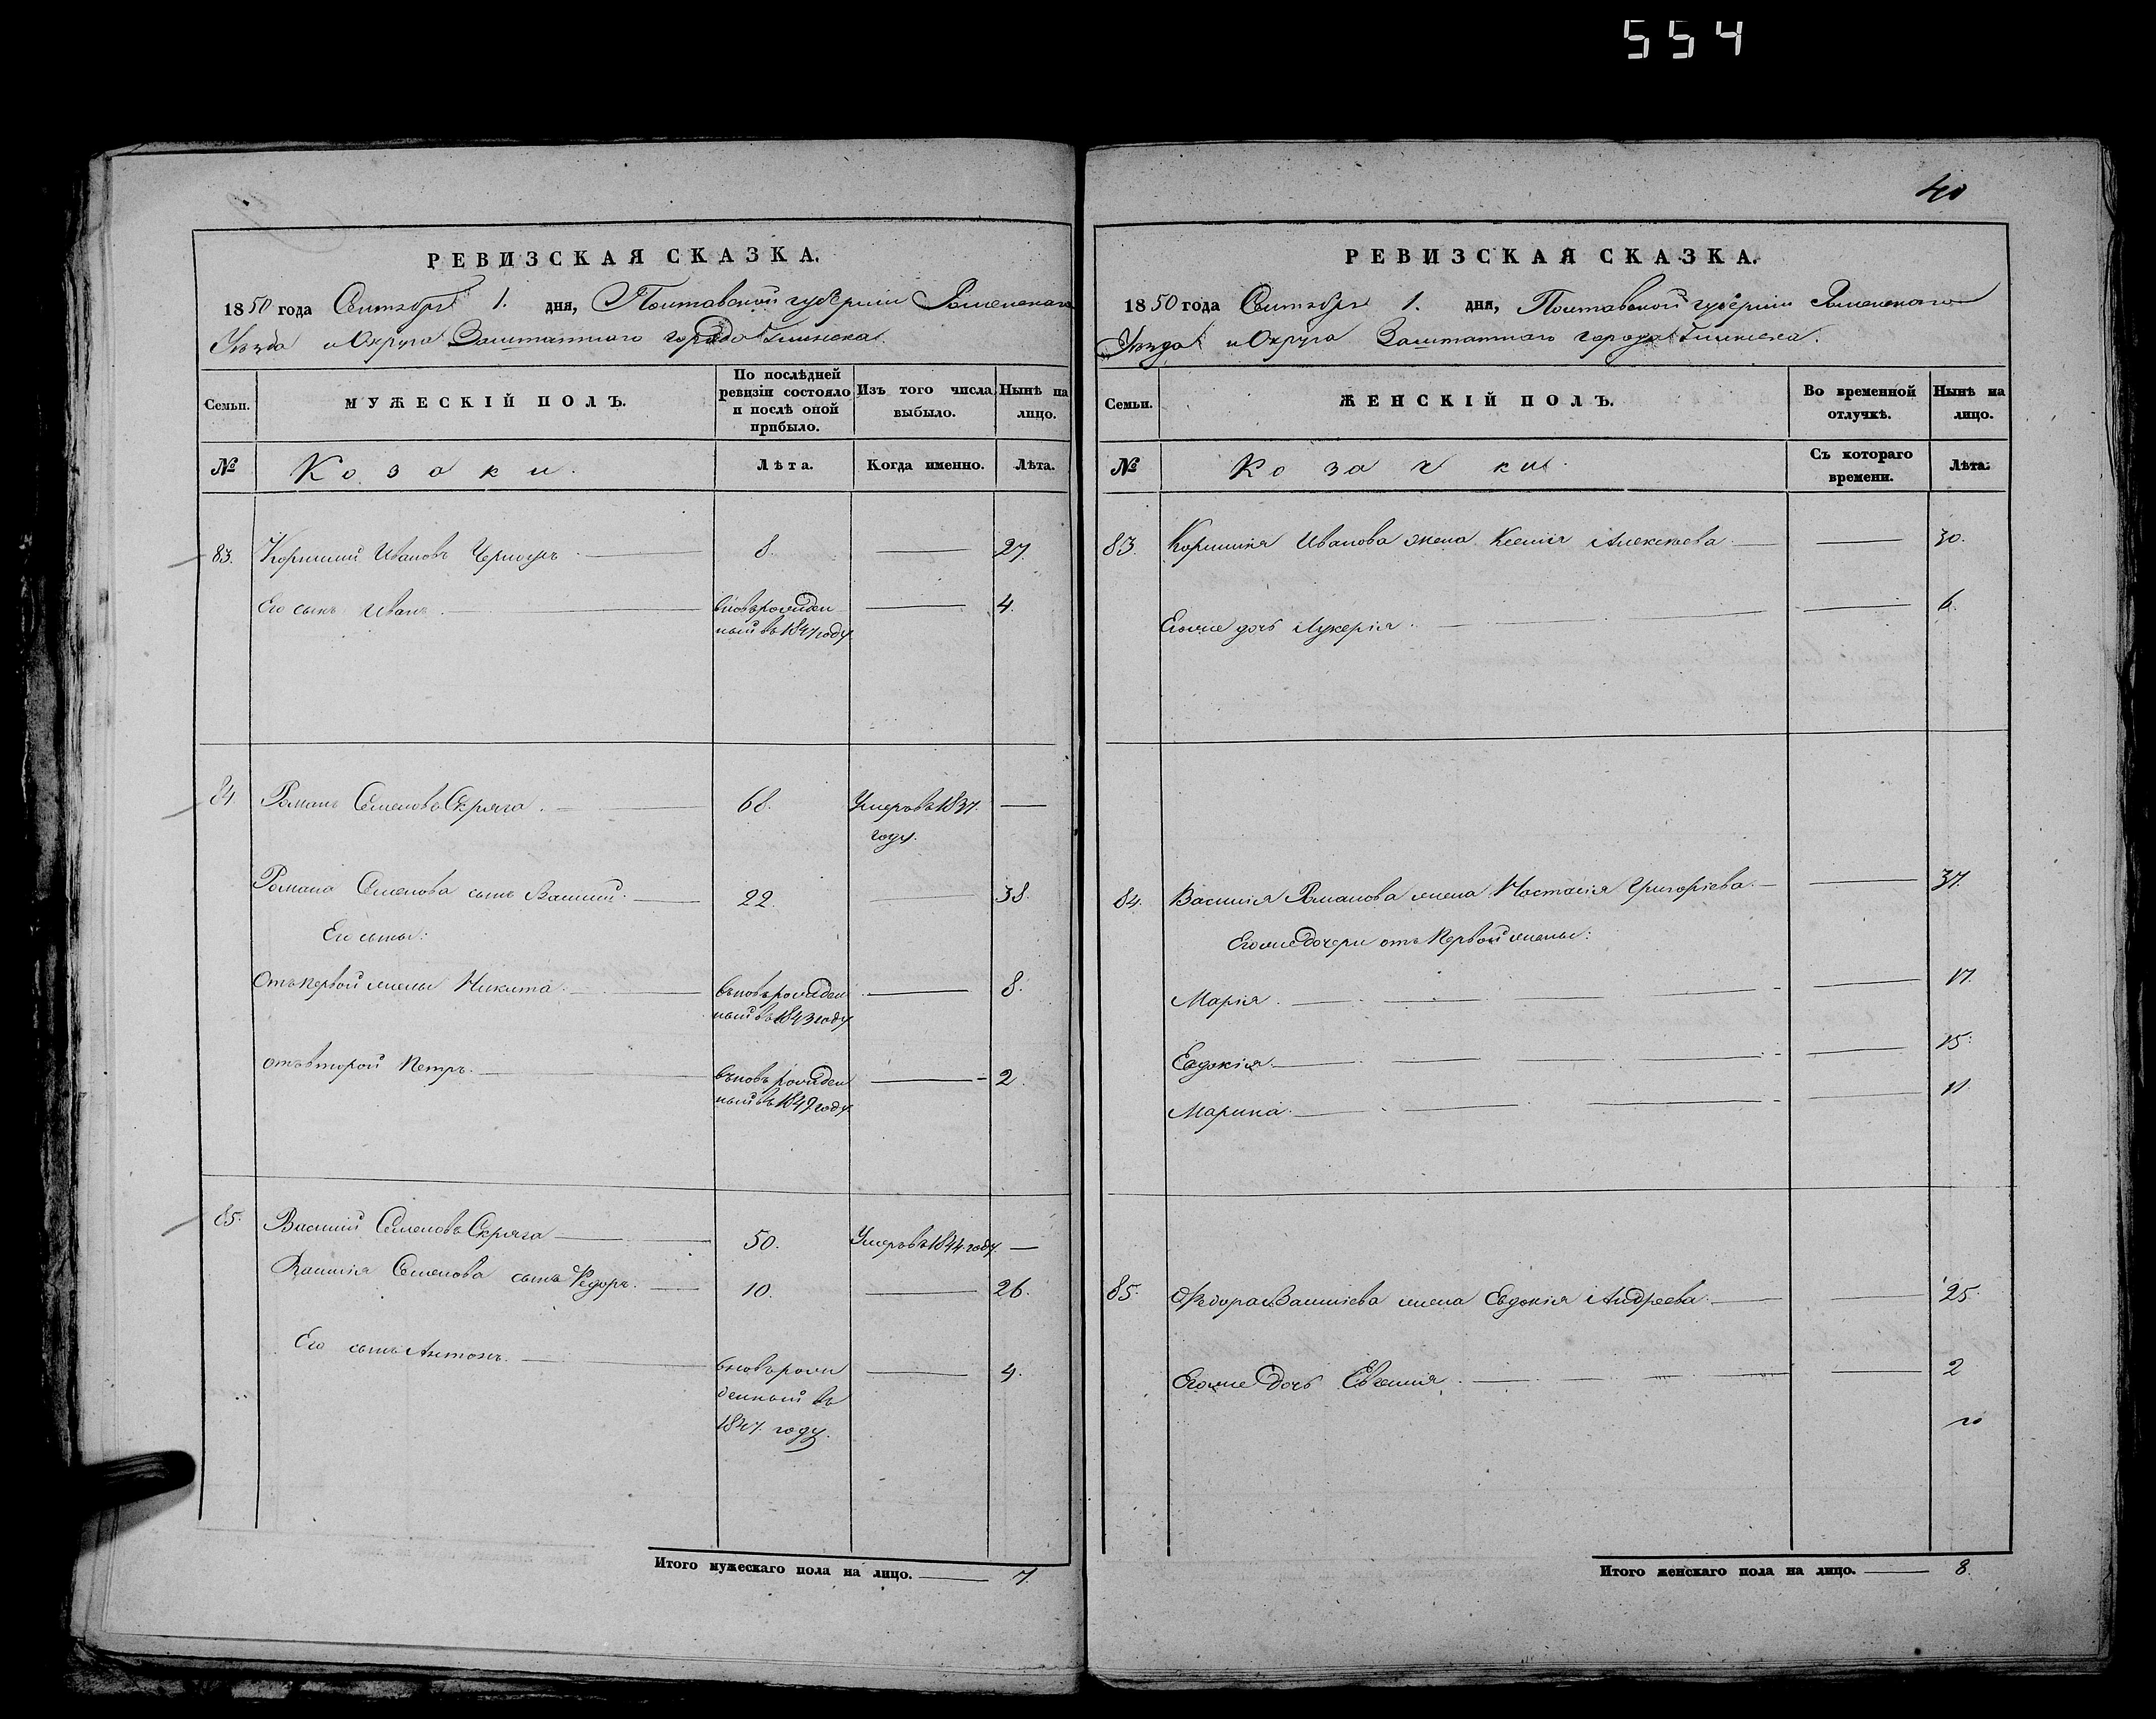 554
РЕВИЗСКАЯ СКАЗКА.
1850 года Сентября 1. дня, Полтавской губерніи Роменскаго
Уѣзда и Округа Заштатнаго города Глинска.
Семьи.
МУЖЕСКІЙ ПОЛЪ.
По послѣдней
ревизіи состояло
и послѣ оной
прибыло.
Изъ того числа
выбыло.
Нынѣ на
лицо.
№
Козаки.
Лѣта.
Когда именно.
Лѣта.
83. Корнилій Ивановъ 8. 27.
Его сынъ Иванъ. вновьрожден
ный въ 1847 году 4.
84 Романъ Семеновъ Скряга. 68. Умеръ въ 1837.
году.
Романа Семенова сынъ Василій. 22. 38.
Его сыны:
Отъ первой жены Никита. вновьрожден
ный въ 1843 году 8.
отъ второй Петръ. вновьрожден
ный въ 1849 году 2.
85. Василій Семеновъ Скряга 50. Умеръ въ 1844 году
Василія Семенова сынъ Федоръ. 10. 26.
Его сынъ Антонъ. вновьрож
денный въ
1847. году. 4.
Итого мужескаго пола на лицо. 7.
40
РЕВИЗСКАЯ СКАЗКА.
1850 года Сентября 1. дня, Полтавской губерніи Роменскаго
Уѣзда и Округа Заштатнаго города Глинска.
Семьи.
ЖЕНСКІЙ ПОЛЪ.
Во временной
отлучкѣ.
Нынѣ на
лицо.
№
Козачки.
Съ котораго
времени.
Лѣта.
83. Корнилія Иванова жена Ксенія Алексѣева 30.
Егоже дочь Лукерія. 6.
84. Василія Романова жена Настасія Григоріева. 37.
Егоже дочери отъ первой жены:
Марія. 17.
Евдокія. 15.
Марина. 11
85. Федора Василіева жена Евдокія Андреева 25.
Егоже дочь Евгенія. 2
Итого женскаго пола на лицо. 8.